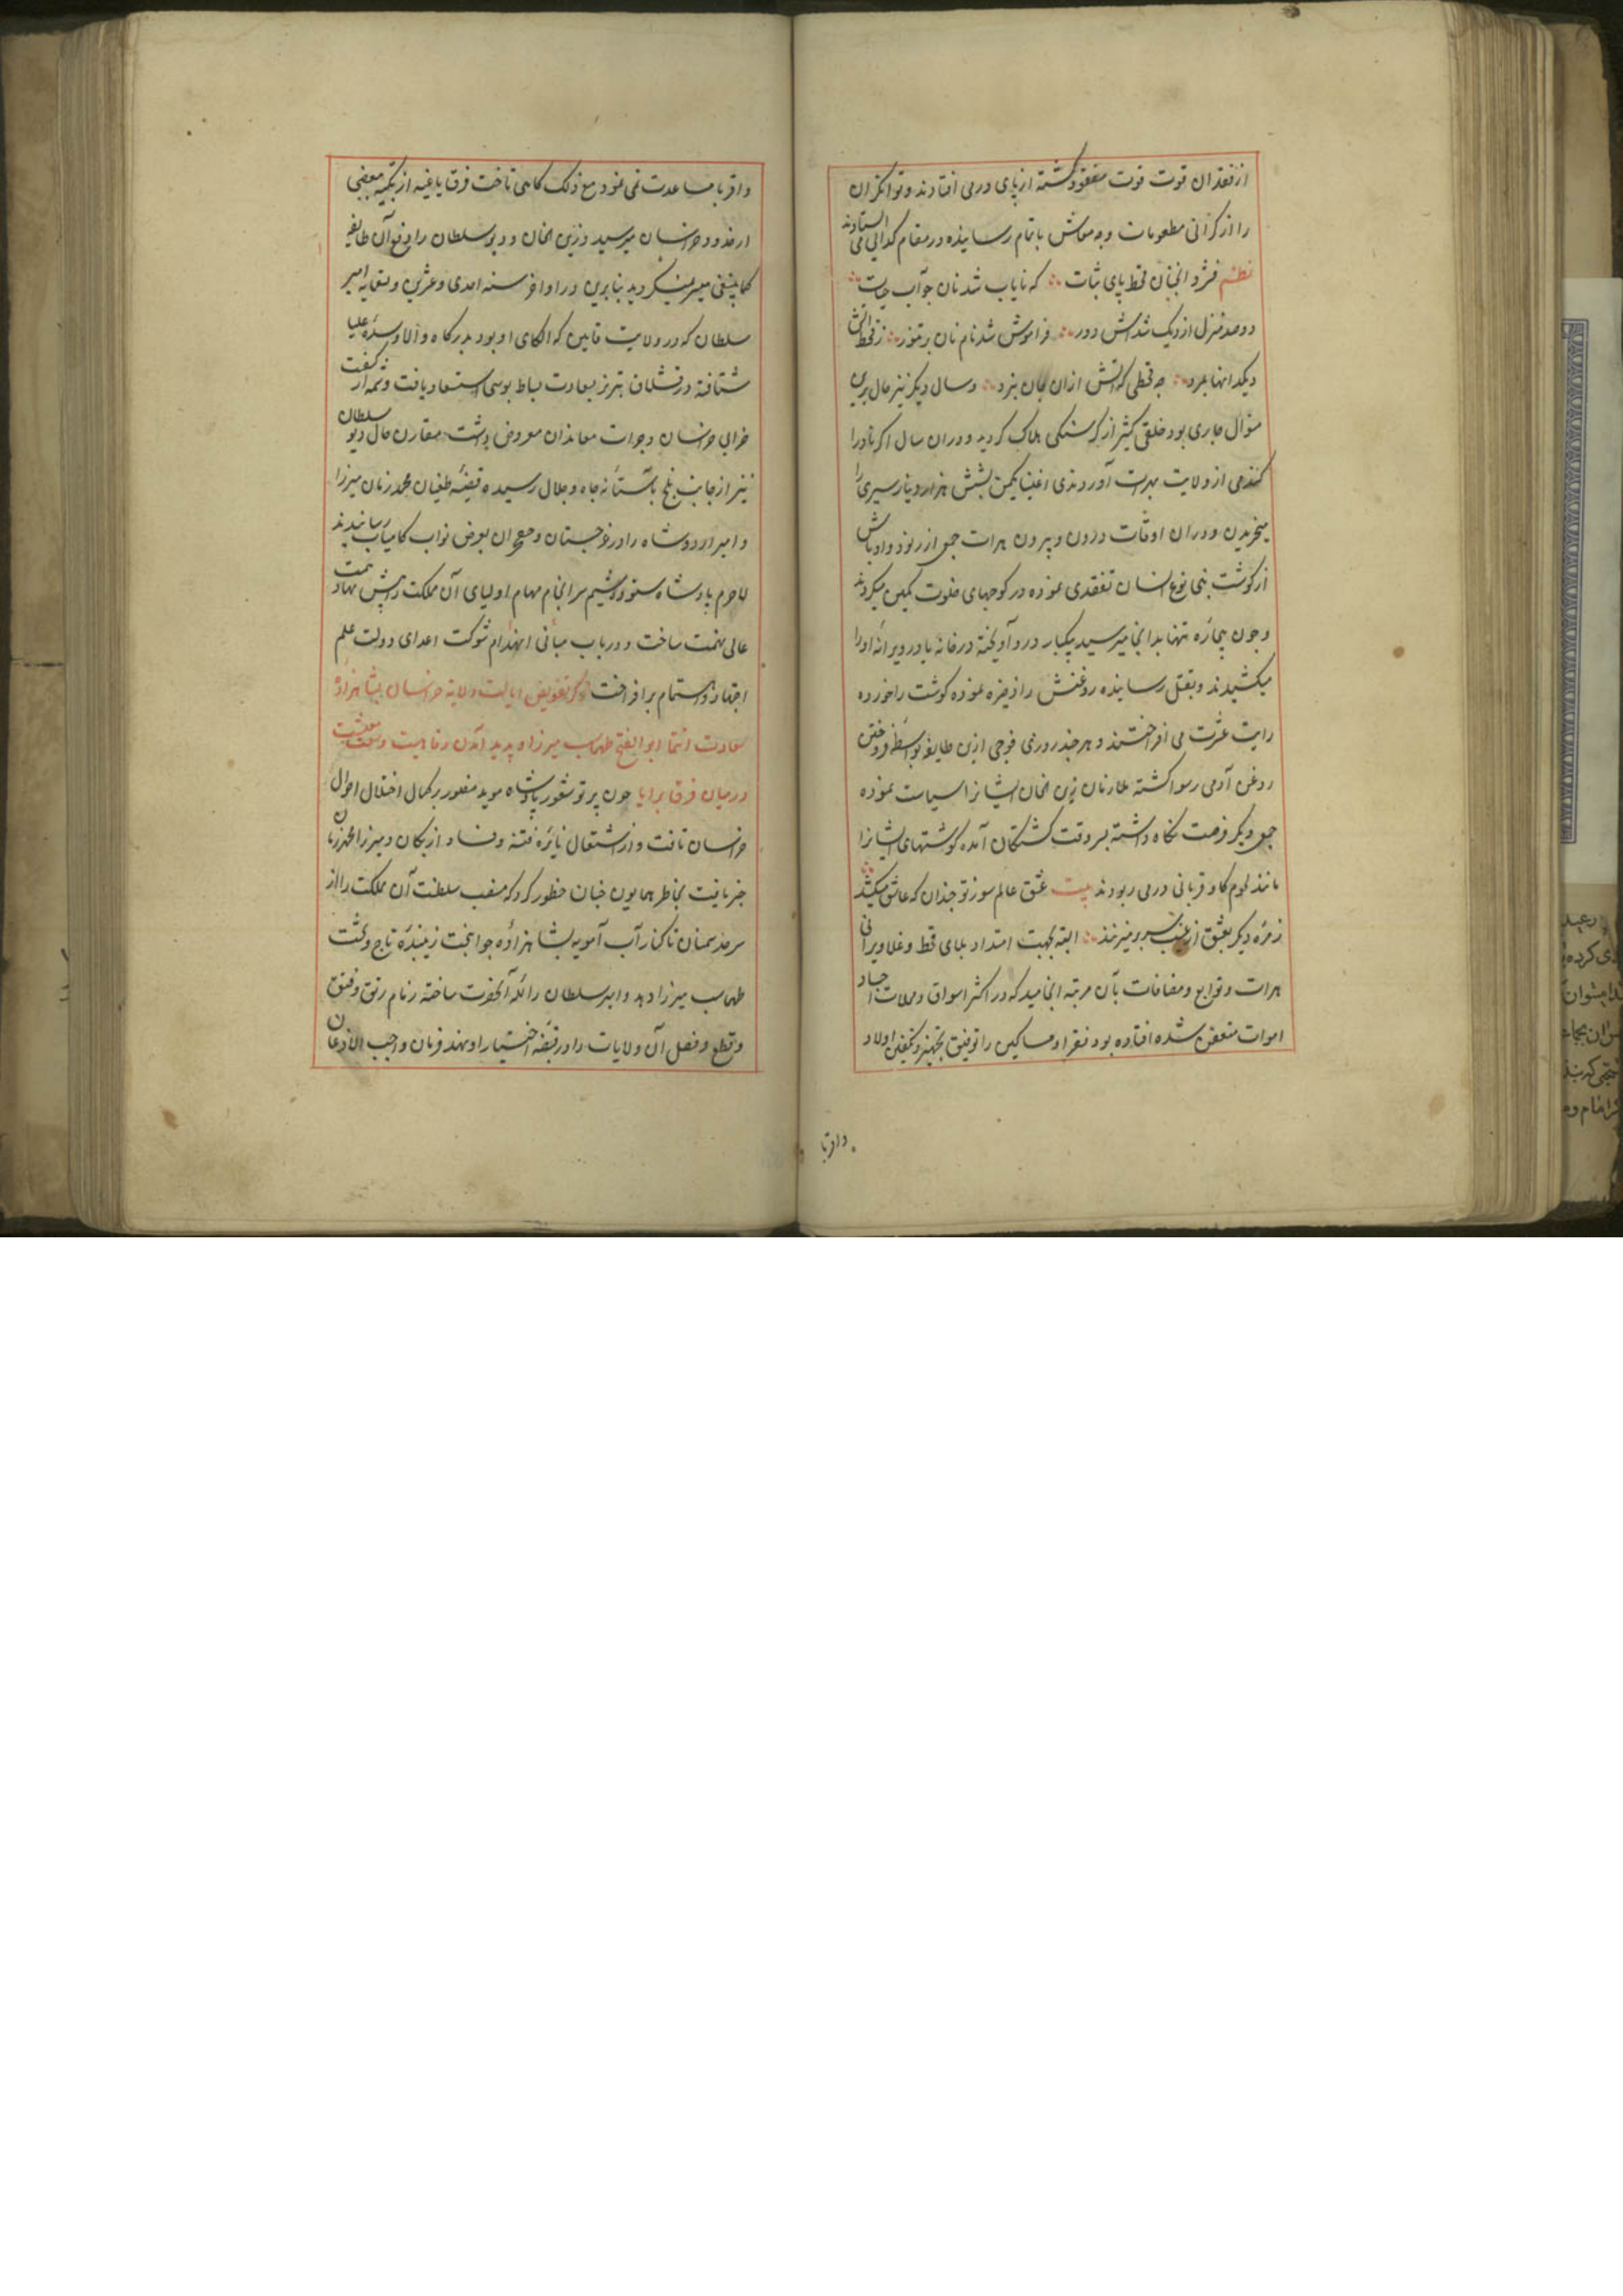 از فقدان قوت قوت مفقود گشته از پای در می افتادند و توانگران
را از گرانی مطعومات وجه معاش باتمام رسانیده در مقام گدایی می ایستادند
نظم فشرد آنچنان قحط پای ثبات که نایاب شد نان چو آب حیات
دو صد منزل از دیک شد آش دور فراموش شد نام نان بر تنور ز قحط آتش
دیگدانها بمرد چه قحطی که آتش ازان جان نبرد و سال دیگر نیز حال برین
منوال جاری بود خلقی کثیر از گرسنگی هلاک گردید و دران سال اگر نادرا
گندمی از ولایت بهرات آوردندی اغنیا یکمن بشش هزار دینار سیری را
میخریدن و دران اوقات درون و بیرون هرات جمعی از رنود و اوباش
از گوشت بنی نوع انسان تفقدی نموده در کوچهای خلوت کمین میکردند
و چون بیچاره تنها بدانجا میرسید یکبار در و آویخته در خانه یا در ویرانه او را
میکشیدند و بقتل رسانیده روغنش را ذخیره نموده گوشت را خورده
رایت عشرت می افراختند و هر چند روزی فوجی ازین طایفه بواسطه فروختن
روغن آدمی رسوا گشته ملازمان زین الخان ایشانرا سیاست نموده
جمعی دیگر فرصت نگاه داشته بسر وقت کشتگان آمده گوشتهای ایشانرا
مانند لحوم گاو قربانی در می ربودند بیت عشق عالم سوز تو چندان که عاشق میکشد
زمره دیگر بعشق از غیب سر بر میزنند البته بجهت امتداد بلای قحط و غلا ویرانی
هرات و توابع و مضافات بآن مرتبه انجامید که در اکثر اسواق و محلات اجساد
اموات متعفن شده افتاده بود فقرا و مساکین را توفیق تجهیز و تکفین اولاد
واقربا
واقربا مساعدت نمی نمود مع ذلک گاهی تاخت فرق یاغیه ازبکیه ببعضی
از حدود خراسان میرسید و زین الخان و دیو سلطان را دفع آن طایفه
کماینبغی میسر نمیگردید بنابرین در اواخر سنه احدی و عشرین و تسعمایه امیر
سلطان که در ولایت قاین که الکای او بود بدرگاه والا و سده علیا
شتافته در قشلاق تبریز بسعادت بساط بوسی استسعاد یافت و شمه از کیفیت
خرابی خراسان و جرات معاندان معروض داشت مقارن حال دیو سلطان
نیز از جانب بلخ بآستانه جاه و جلال رسیده قضیه طغیان محمد زمان میرزا
و امیر اردوشاه را در غرجستان و چیچکتو بعرض نواب کامیاب رسانیدند
لاجرم پادشاه ستوده شیم سرانجام مهام اولیای آن مملکت را پیش نهاد همت
عالی نهمت ساخت و در باب مبانی انهدام شوکت اعدای دولت علم
اجتهاد و اهتمام برافراخت ذکر تفویض ایالت ولایة خراسان بشاهزاده
سعادت انتما ابو الفتح طهماسب میرزا و پدید آمدن رفاهیت و سعت معیشت
در میان فرق برایا چون پرتو شعور پادشاه موید منصور بر کمال اختلال احوال
خراسان تافت و از اشتعال نایره فتنه و فساد ازبکان و میرزا محمد زمان
خبر یافت بخاطر همایون چنان خطور کرد که منصب سلطنت آن مملکت را از
سرحد سمنان تا کنار آب آمویه بشاهزاده جوانبخت زیبنده تاج و تخت
طهماسب میرزا دهد و امیر سلطان را لله آنحضرت ساخته زمام رتق و فتق
و قطع و فصل آن ولایات را در قبضه اختیار او نهد فرمان واجب الاذعان